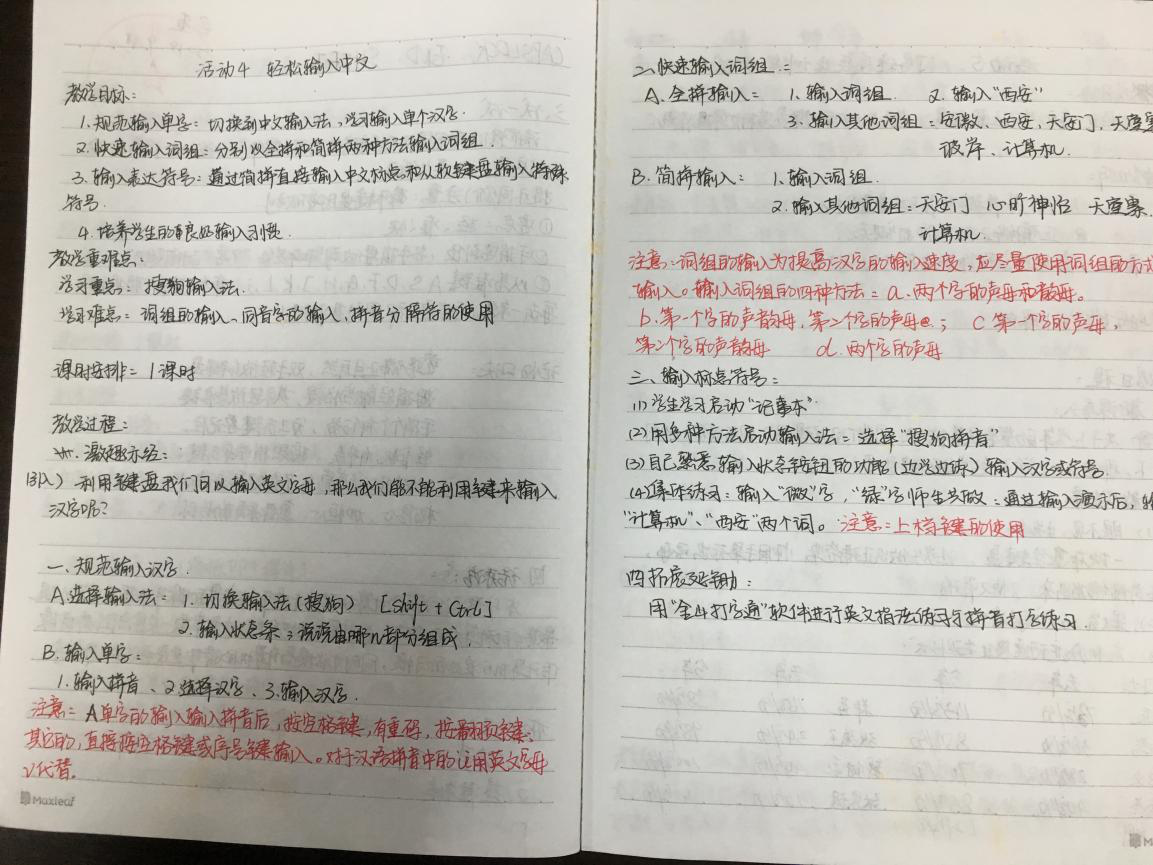 活动4 轻松输入中文
教学目标:
1.规范输入单字:切换到中文输入法,学习输入单个汉字.
2.快速输入词组:分别以全拼和简拼两种方法输入词组.
3.输入表达符号:通过简拼直接输入中文标点和从软键盘输入特殊
符号.
4.培养学生的良好输入习惯.
教学重难点:
学习重点:搜狗输入法.
学习难点:词组的输入、同音字的输入,拼音分隔符的使用
课时安排=1课时
教学过程:
激趣示标:
导入)利用键盘我们可以输入英文字母,那么我们能不能利用键来输入
汉字呢?
一、规范输入汉字.
A.选择输入法:1.切换输入法(搜狗) [shift + Ctrl]
2.输入状态条:说说由哪几部分组成.
B.输入单字:
1.输入拼音、2.选择汉字、3.输入汉字.
注意=A单字的输入输入拼音后,按空格键,有重码,按翻页键;
其它的,直接按空格键或序号键输入。对于汉语拼音中的ü用英文字母
v代替.
Maxleaf
二、快速输入词组:
A.全拼输入: 1.输入词组. 2.输入"西安"
3.输入其他词组:安徽、西安、天安门,天
彼岸、计算机.
B.简拼输入: 1.输入词组.
2.输入其他词组:天安门 心旷神怡 天
计算机
注意:词组的输入为提高汉字的输入速度,应尽量使用词组的方式
输入。输入词组的四种方法=a.两个字的声母和韵母。
b.第一个字的声韵母,第二个字的声母; C第一个字的声母,
第2个字的声韵母 d.两个字的声母
三、输入标点符号:
(1)学生学习启动"记事本"
(2)用多种方法启动输入法=选择"搜狗拼音"
(3)自己熟悉输入状态按钮的功能(边学边练)输入汉字或符号.
(4)集体练习:输入"微"字,"绿"字师生共做:通过输入演示后,输
"计算机"、"西安"两个词。注意=上档键的使用
四拓展延伸:
用"金山打字通"软件进行英文指法练习与拼音打字练习.